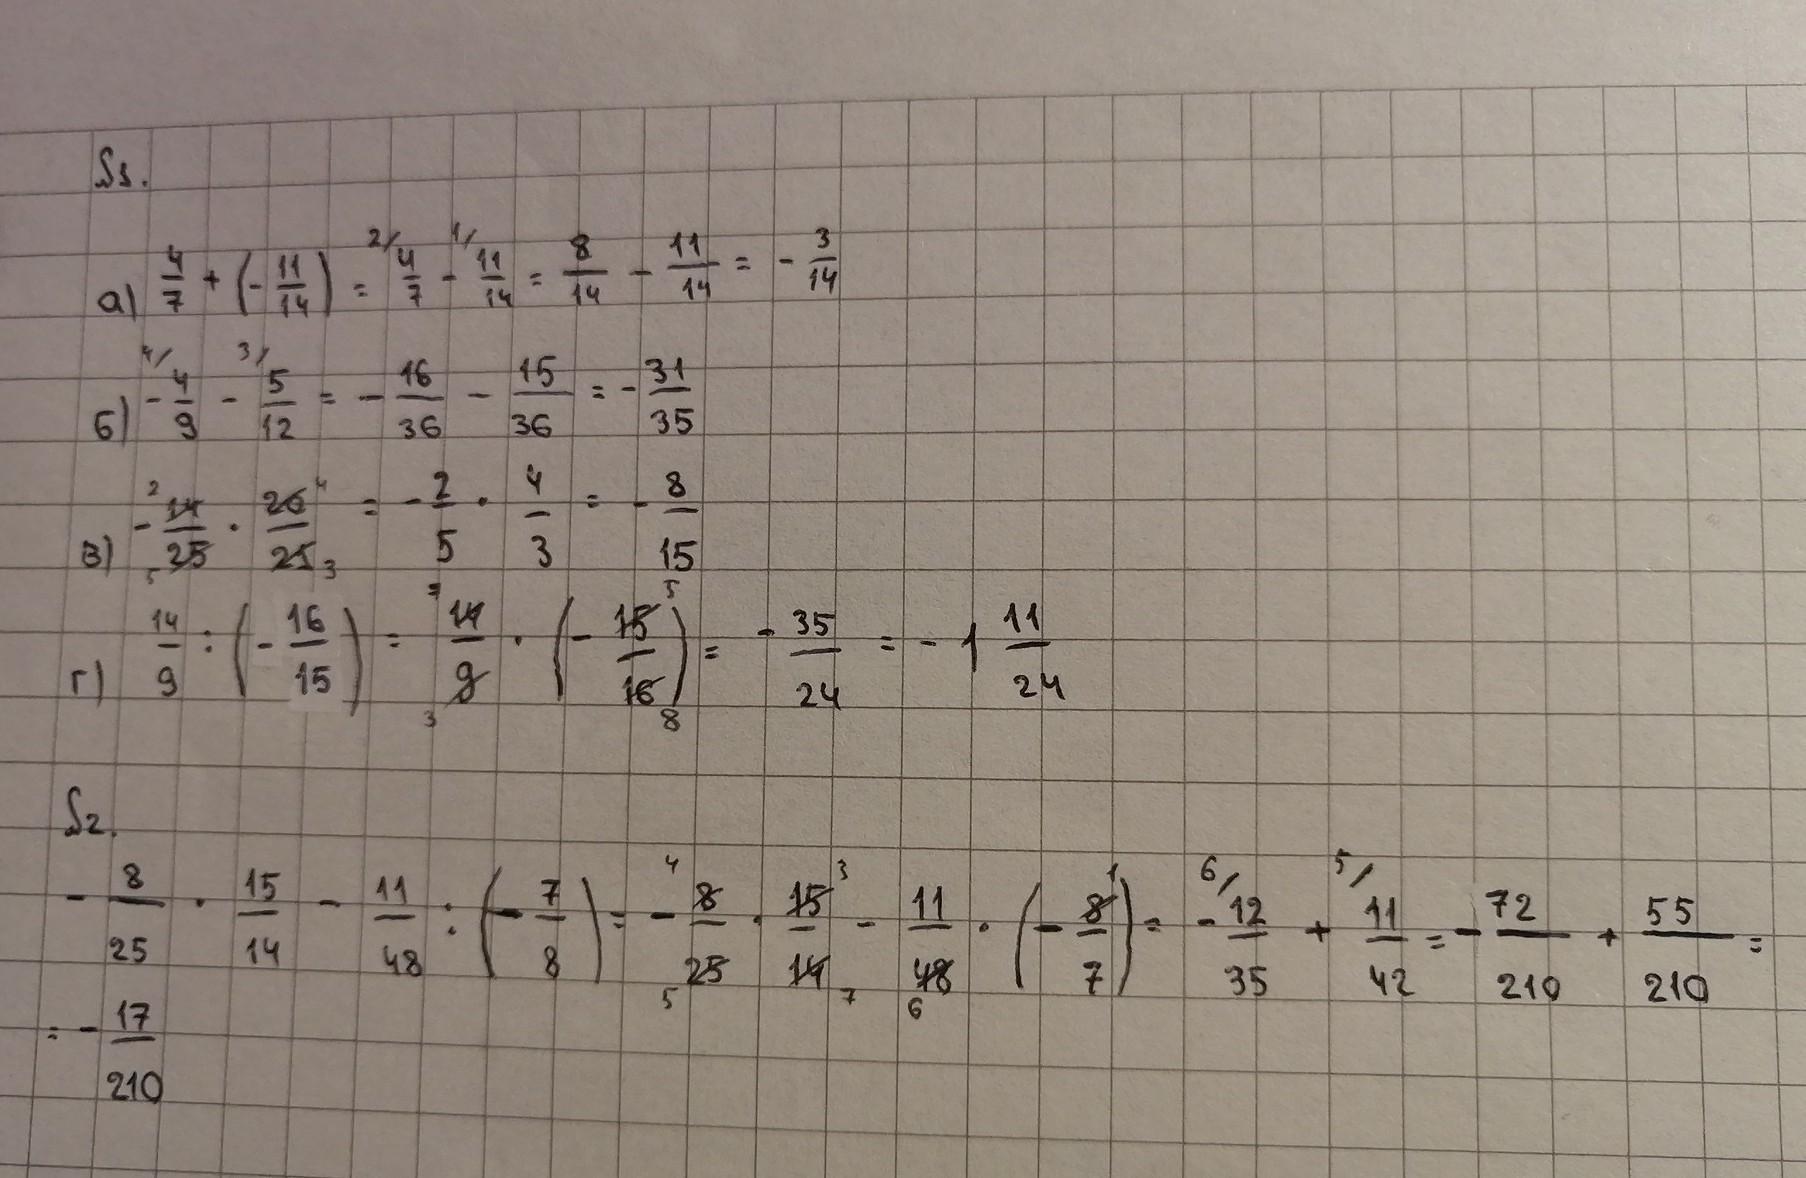 S1.
а) 4/7 + (- 11/14) = ²/4/7 - ¹/11/14 = 8/14 - 11/14 = - 3/14
б) ⁴/ - 4/9 - ³/5/12 = - 16/36 - 15/36 = - 31/35
в) - ²14/25₅ · 20⁴/25₃ = - 2/5 · 4/3 = - 8/15
г) 14/9 : (- 16/15) = ⁷14/9₃ · (- 15⁵/16₈) = - 35/24 = - 1 11/24
S2.
- 8/25 · 15/14 - 11/48 : (- 7/8) = - ⁴8/25₅ · 15³/14₇ - 11/48₆ · (- 8¹/7) = ⁶/ - 12/35 + ⁵/11/42 = - 72/210 + 55/210 =
= - 17/210